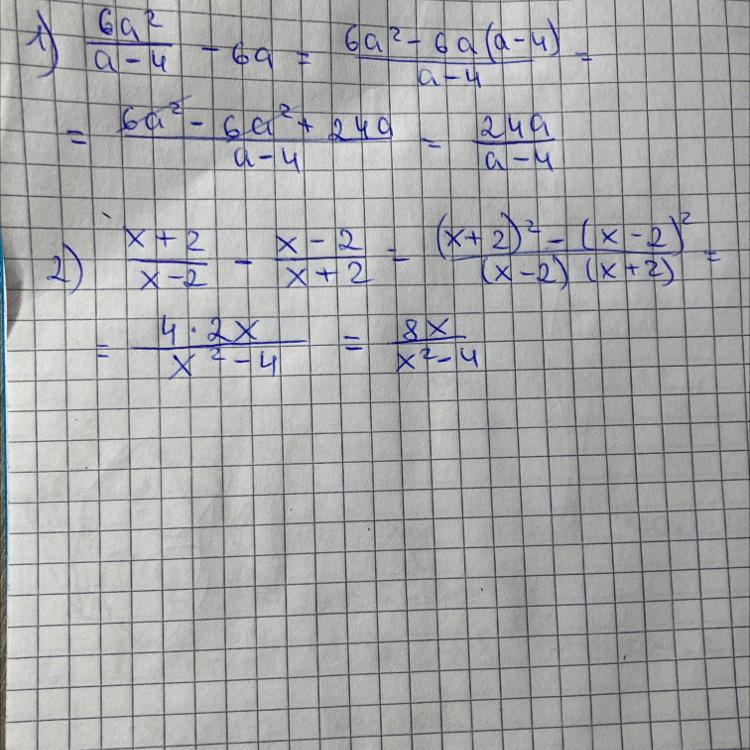 1) 6a²/(a-4) - 6a = (6a² - 6a(a-4))/(a-4) =
= (6a² - 6a² + 24a)/(a-4) = 24a/(a-4)
2) (x+2)/(x-2) - (x-2)/(x+2) = ((x+2)² - (x-2)²)/((x-2)(x+2)) =
= (4·2x)/(x²-4) = 8x/(x²-4)